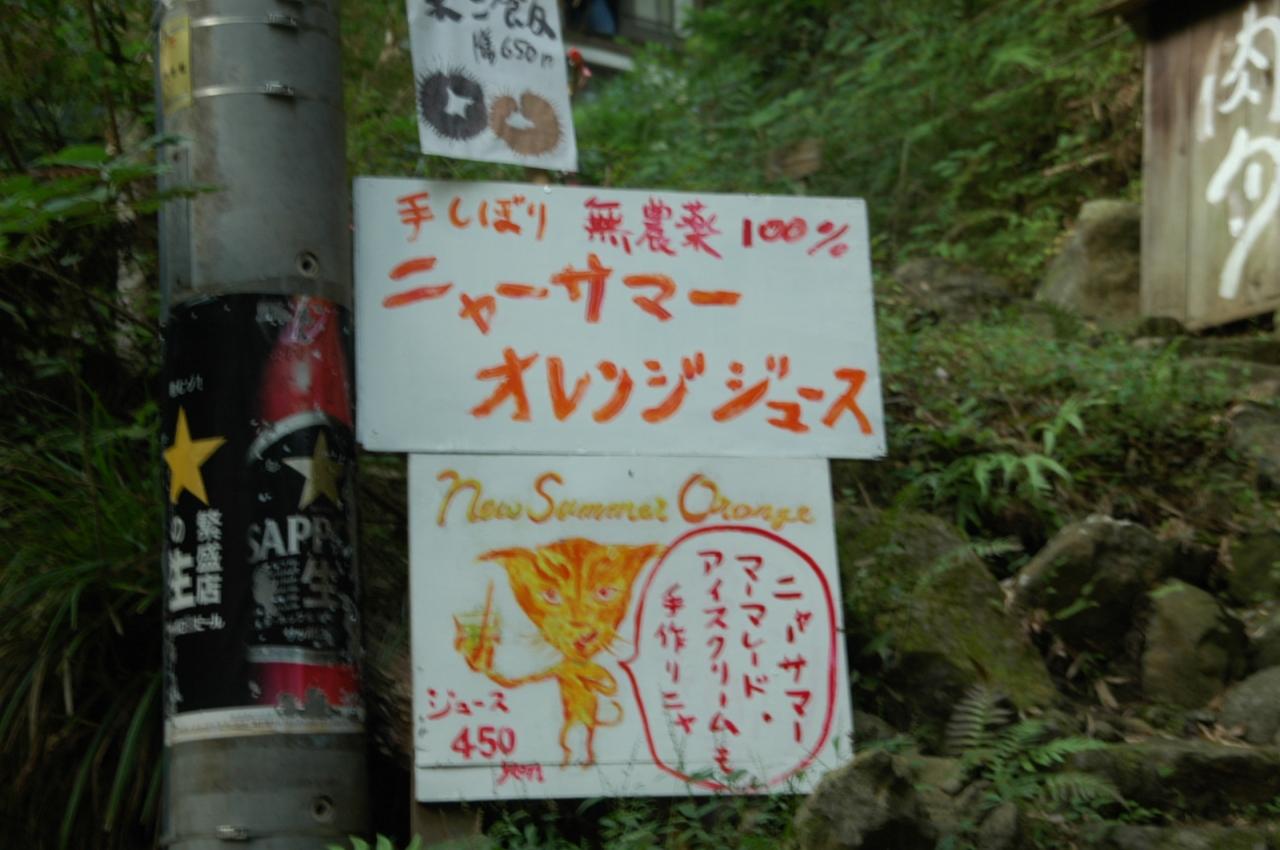 膳650円
手しぼり 無農薬 100%
ニャーサマー
オレンジジュース
New Summer Orange
ニャーサマー
マーマレード・
アイスクリームも
手作りニャ
ジュース
450
yen
繁盛店
の生
SAPPORO
生
ビール
肉